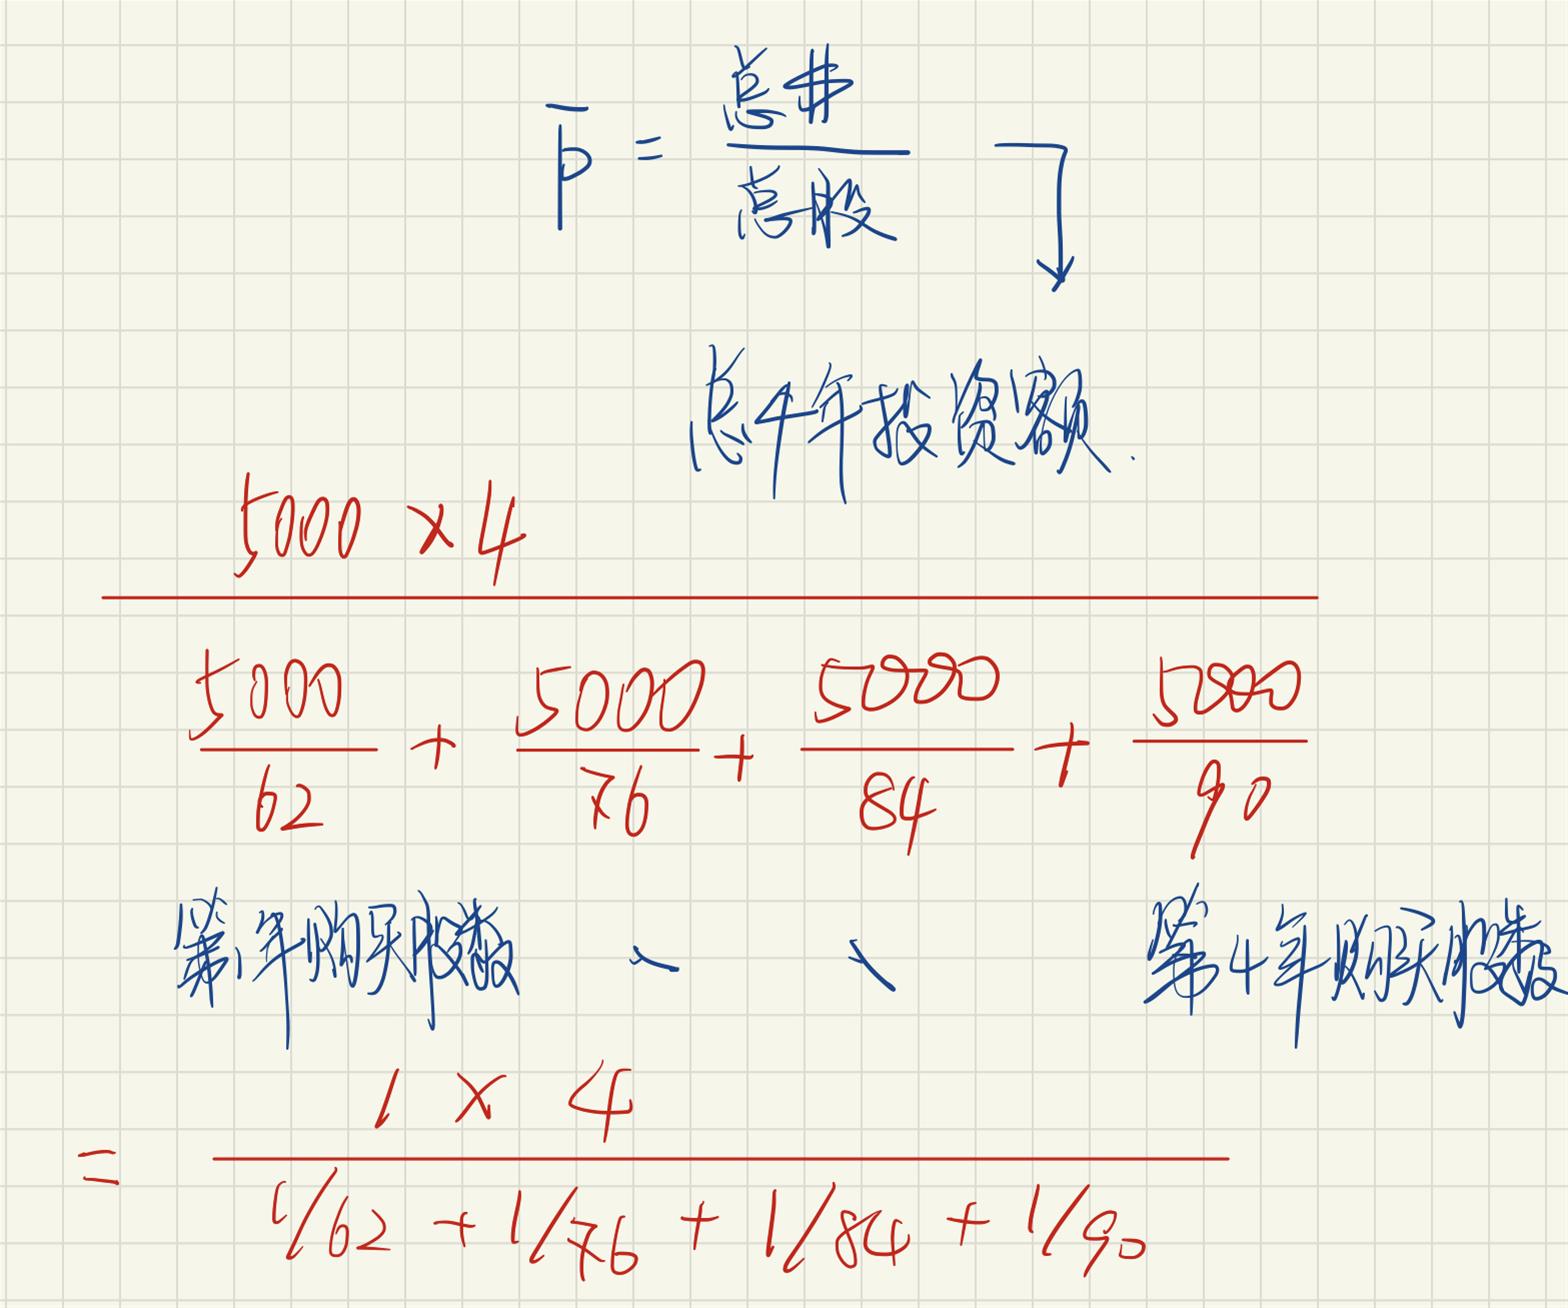 p̄ = 总$ / 总股
总4年投资额.
5000 × 4
5000/62 + 5000/76 + 5000/84 + 5000/90
第1年购买股数 、 、 第4年购买股数
1 × 4
= 1/62 + 1/76 + 1/84 + 1/90